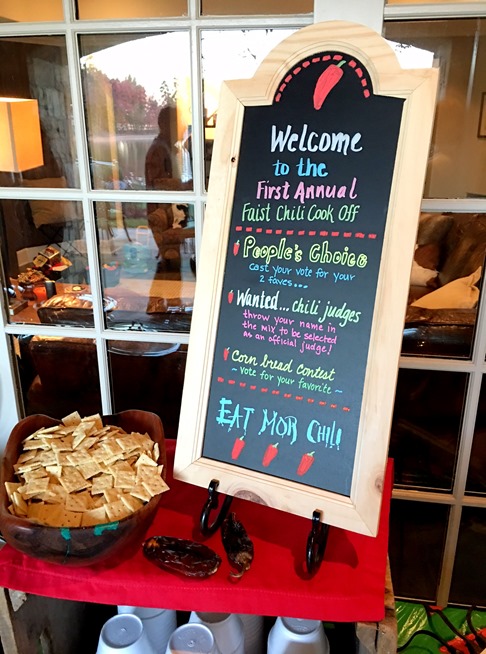 Welcome
to the
First Annual
Faist Chili Cook Off
People's Choice
cast your vote for your
2 faves...
Wanted... chili judges
throw your name in
the mix to be selected
as an official judge!
Corn bread Contest
~ vote for your favorite ~
EAT MOR CHILI